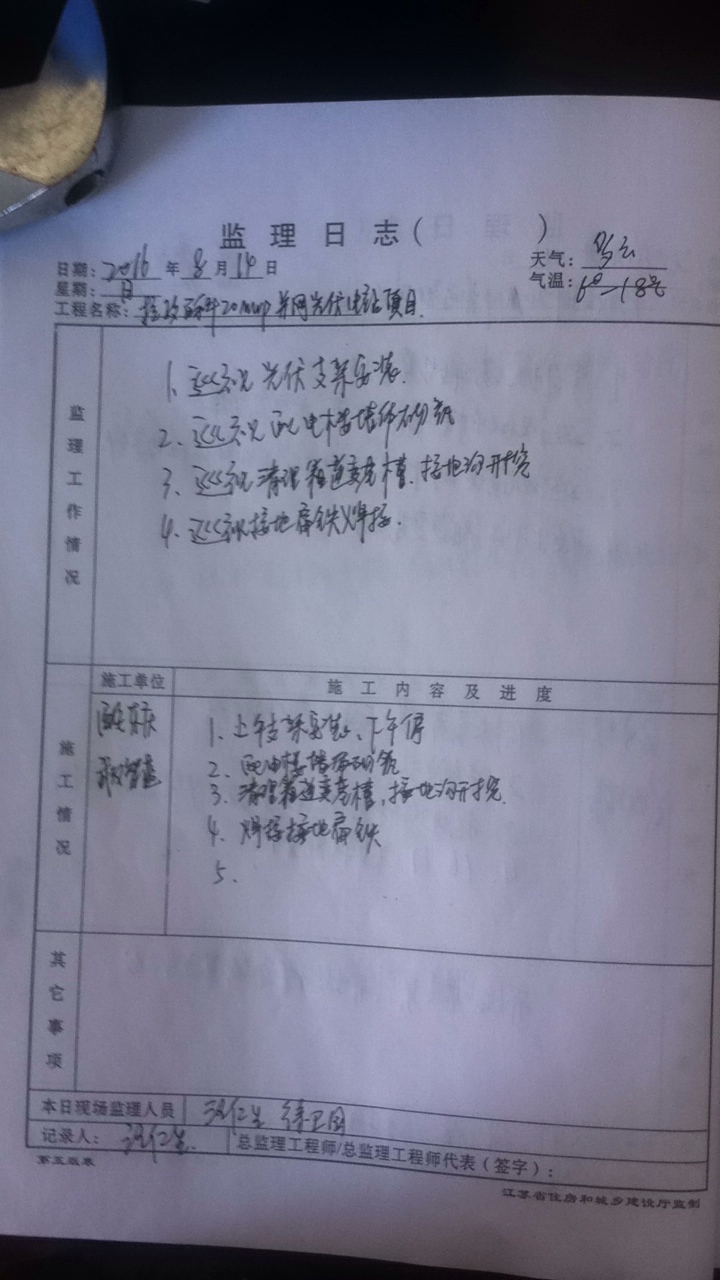 监理日志( )
日期: 2016 年 8 月 14 日 天气: 多云
星期: 日 气温: 6°-18℃
工程名称: 20MWp并网光伏电站项目.
监理工作情况
1、巡视光伏支架安装.
2、巡视配电楼墙体砌筑
3、巡视清理箱逆变基槽、接地沟开挖
4、巡视接地扁铁焊接.
施工单位 施工内容及进度
施工情况
1、上午支架安装、下午停
2、配电楼墙体砌筑
3、清理箱逆变基槽、接地沟开挖.
4、焊接接地扁铁
5.
其它事项
本日现场监理人员 徐卫国
记录人: 总监理工程师/总监理工程师代表(签字):
第五版表 江苏省住房和城乡建设厅监制